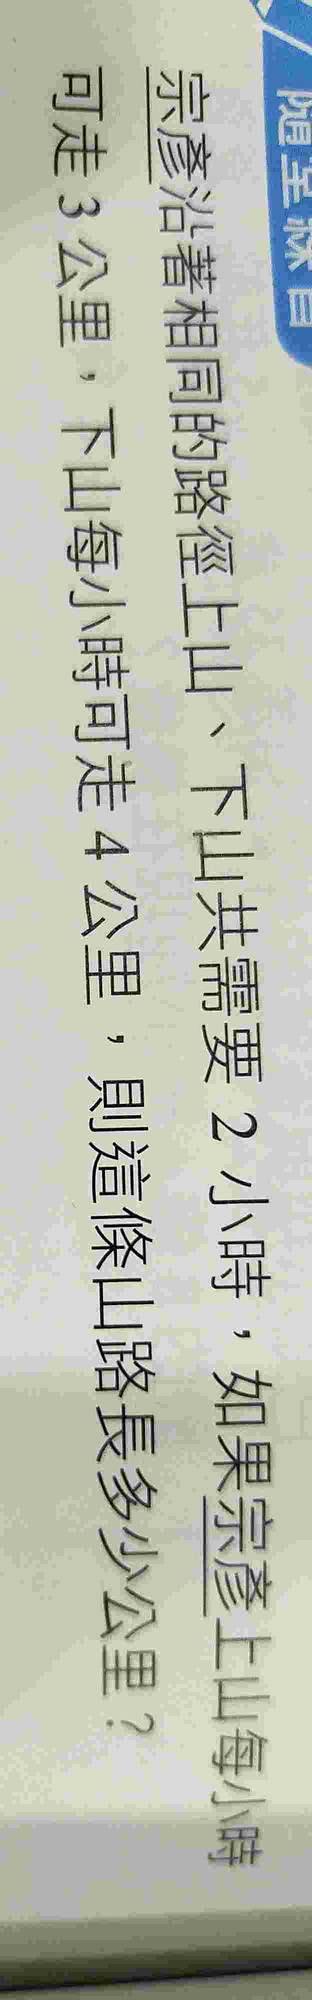 隨堂練習
宗彥沿著相同的路徑上山、下山共需要 2 小時，如果宗彥上山每小時
可走 3 公里，下山每小時可走 4 公里，則這條山路長多少公里？